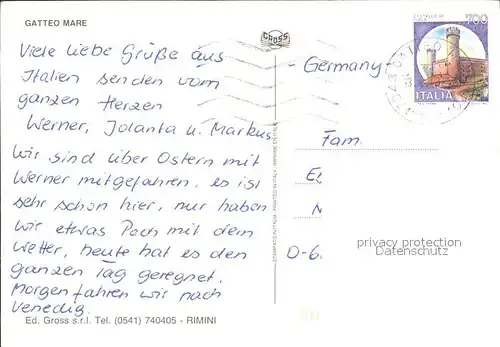 GATTEO MARE
GROSS
Viele liebe Grüße aus
Italien senden vom
ganzen Herzen
Werner, Jolanta u. Markus
Wir sind über Ostern mit
Werner mitgefahren, es ist
sehr schön hier, nur haben
wir etwas Pech mit dem
Wetter, heute hat es den
ganzen Tag geregnet.
Morgen fahren wir nach
Venedig.
Ed. Gross s.r.l. Tel. (0541) 740405 - RIMINI
700
ITALIA
- Germany -
Fam.
D-6
privacy protection
Datenschutz